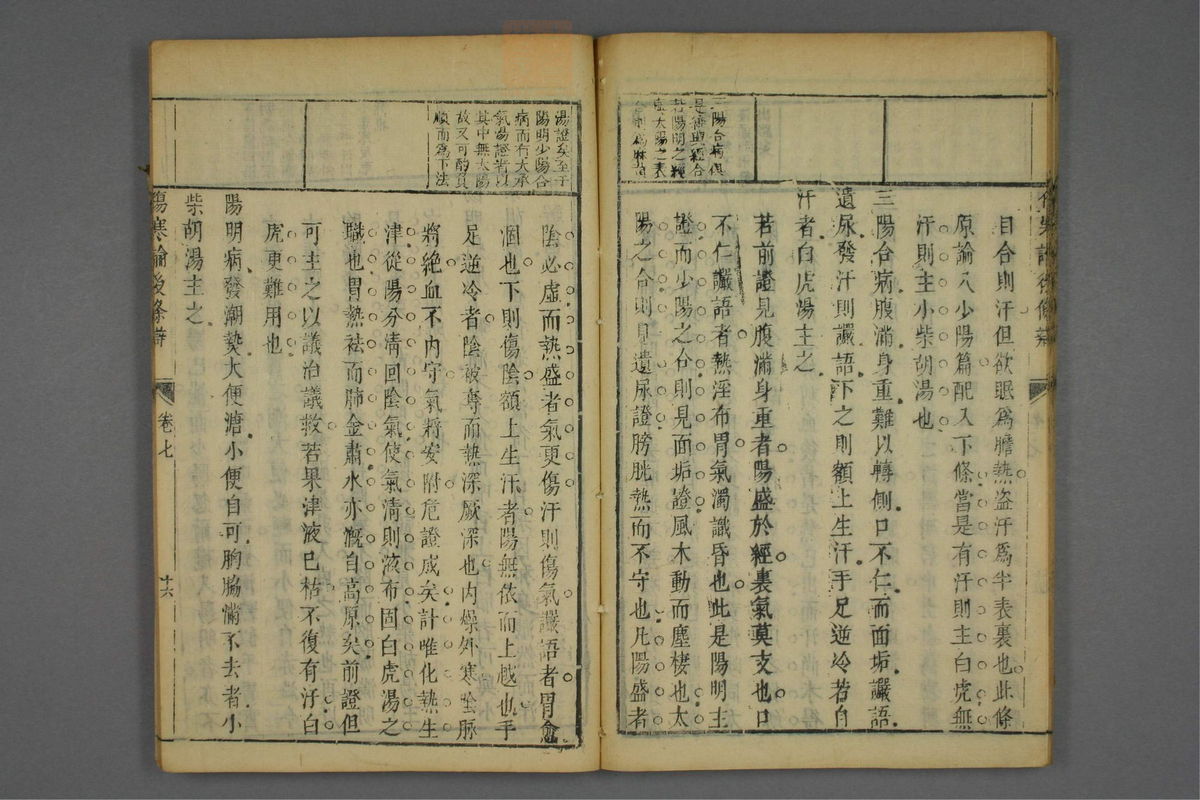 三陽合病俱
是傳與經合
若陽明之經
症太陽之表
目合則汗但欲眠爲膽熱盗汗爲半表裏也此條
原論入少陽篇配入下條當是有汗則主白虎無
汗則主小柴胡湯也
三陽合病腹滿身重難以轉側口不仁而面垢讝語
遺尿發汗則讝語下之則額上生汗手足逆冷若自
汗者白虎湯主之
若前證見腹滿身重者陽盛於經裏氣莫支也口
不仁讝語者熱淫布胃氣濁識昏也此是陽明主
證而少陽之合則見面垢證風木動而塵棲也太
陽之合則見遺尿證膀胱熱而不守也凡陽盛者
湯證矣至于
陽明少陽合
病而有大承
氣湯證者以
其中無太陽
故又可酌負
順而爲下法
陰必虛而熱盛者氣更傷汗則傷氣讝語者胃愈
涸也下則傷陰額上生汗者陽無依而上越也手
足逆冷者陰被奪而熱深厥深也内燥外寒陰脉
將絶血不内守氣將安附危證成矣計唯化熱生
津從陽分淸回陰氣使氣清則液布固白虎湯之
職也胃熱祛而肺金肅水亦溉自高原矣前證但
可主之以議治議救若果津液已枯不復有汗白
虎更難用也
陽明病發潮熱大便溏小便自可胸脇滿不去者小
柴胡湯主之
傷寒論後條辯
卷七
十六